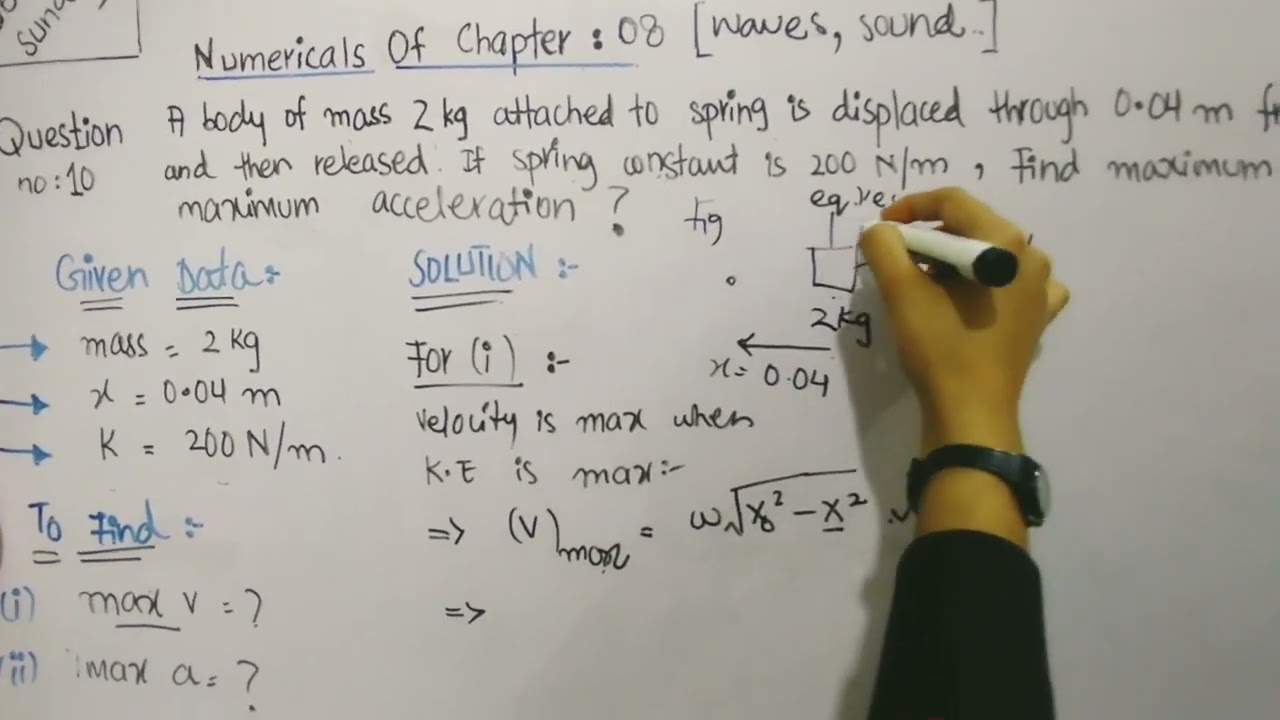 Sund
Numericals Of Chapter : 08 [waves, sound..]
Question no:10
A body of mass 2 kg attached to spring is displaced through 0.04 m
and then released. If spring constant is 200 N/m , Find maximum
maximum acceleration ?
fig
eq.
Given Data:-
SOLUTION :-
2kg
mass = 2 kg
For (i) :-
x = 0.04
x = 0.04 m
velocity is max when
K = 200 N/m.
K.E is max:-
To Find :-
=> (v)max = ω√x₀² - x²
(i) max v = ?
=>
(ii) max a = ?